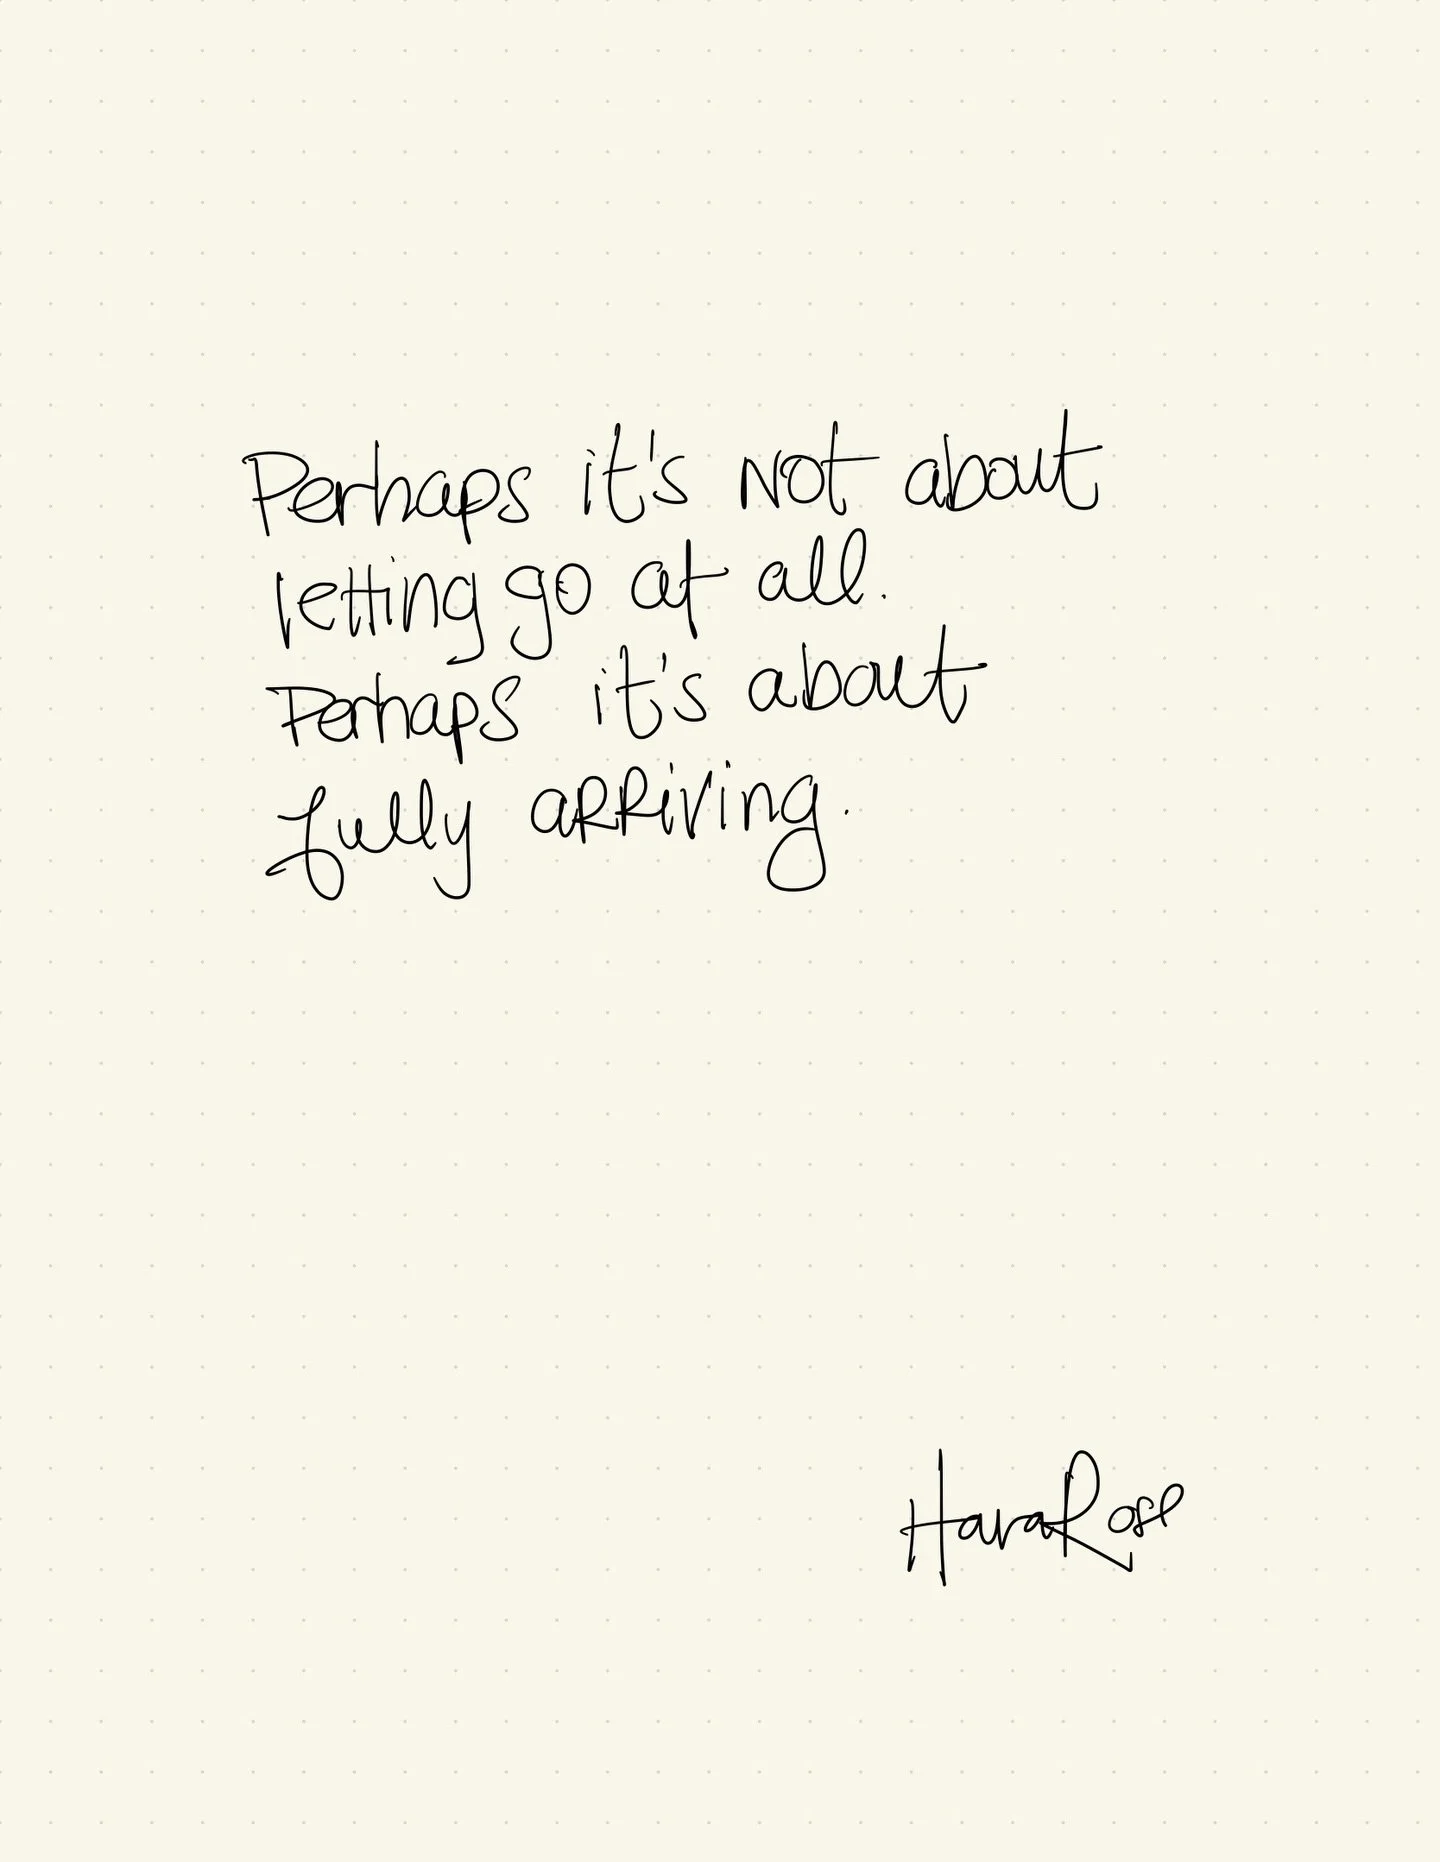 Perhaps it's not about
letting go at all.
Perhaps it's about
fully arriving.
HaraRose